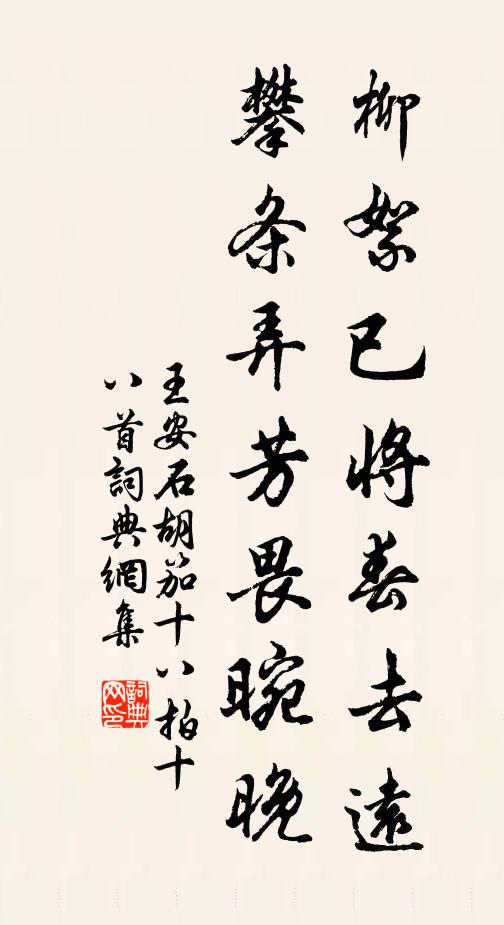 柳絮已將春去遠
攀条弄芳畏晼晚
王安石胡笳十八拍十
八首詞典網集
詞典
网印